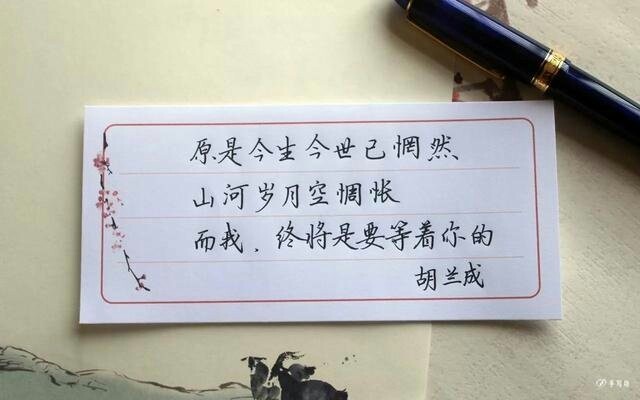 原是今生今世已惘然
山河岁月空惆怅
而我，终将是要等着你的
胡兰成
手写侠